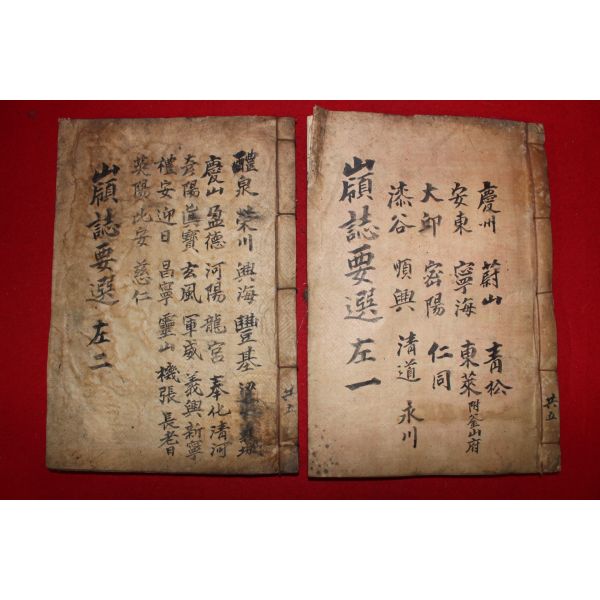 慶州 蔚山 青松
安東 寧海 東萊 附釜山府
大邱 密陽 仁同
漆谷 順興 清道 永川
嶺誌要選 左一
共五
醴泉 榮川 興海 豐基
慶山 盈德 河陽 龍宮 奉化 清河
陽 真寶 玄風 軍威 義興 新寧
禮安 迎日 昌寧 靈山 機張 長耆
英陽 比安 慈仁
嶺誌要選 左二
共五